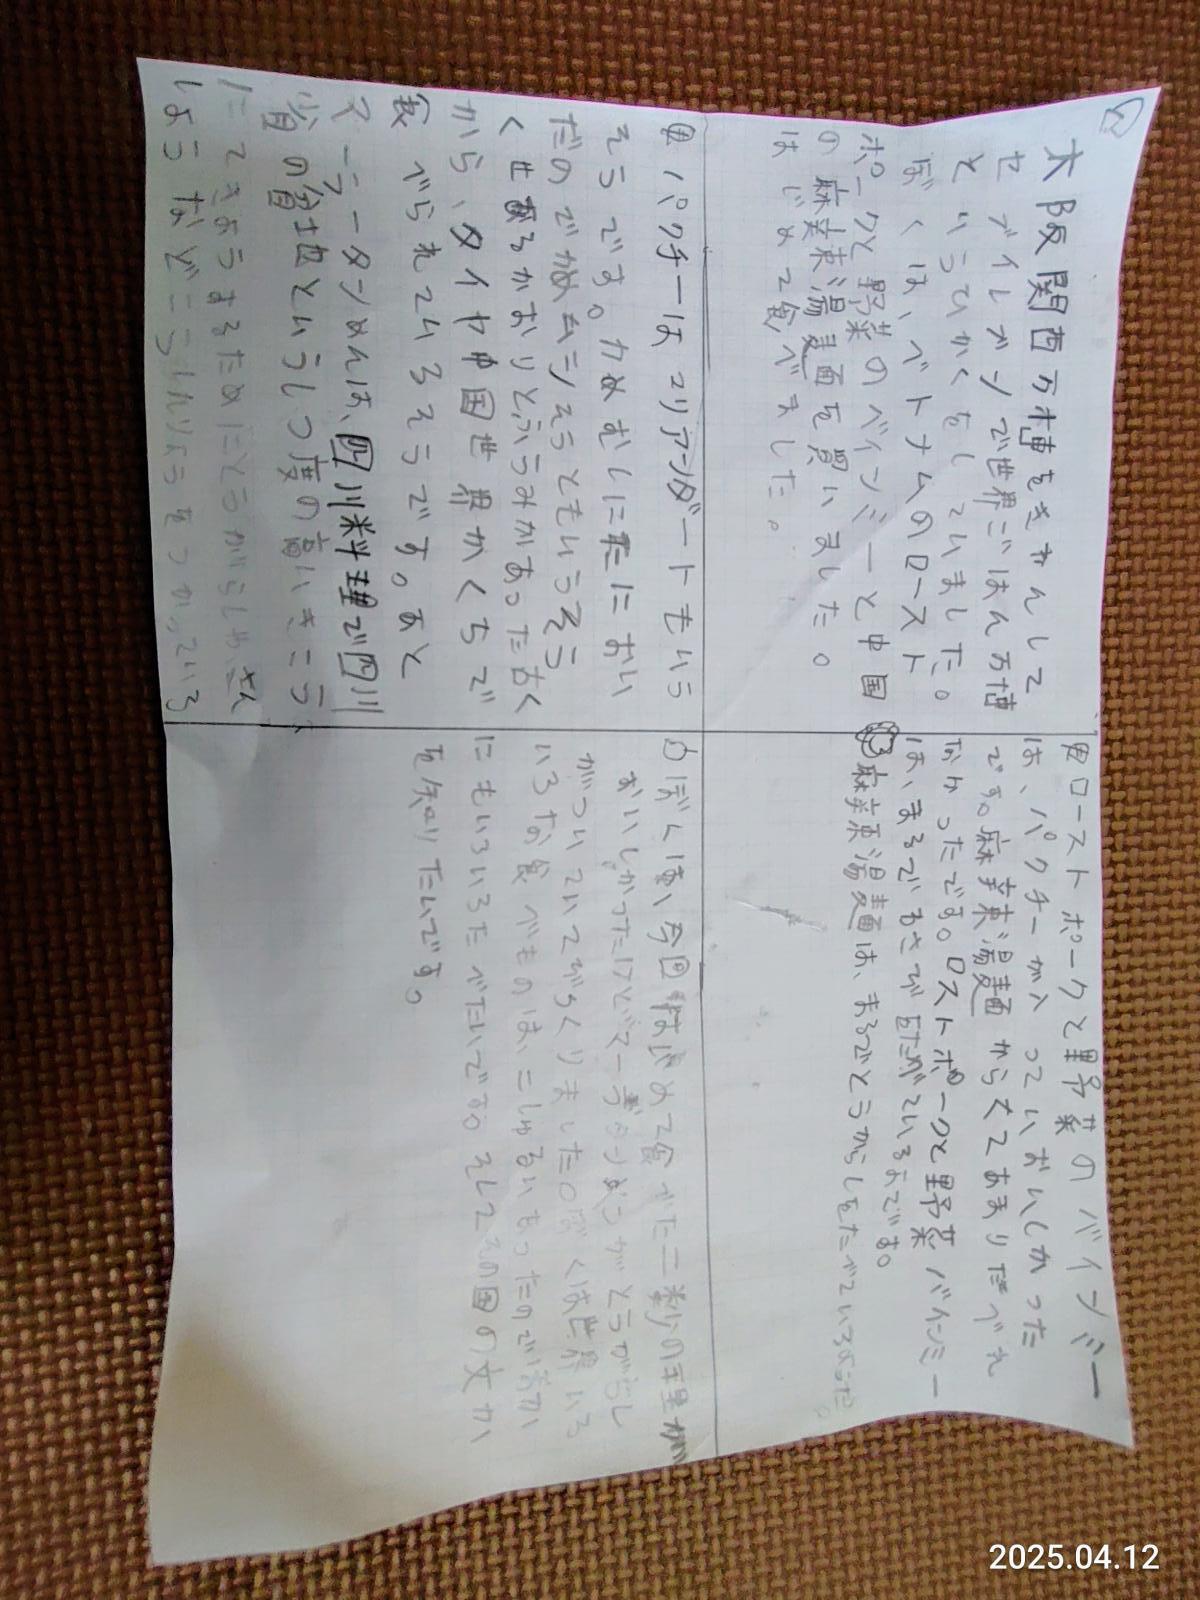 大阪関西万博をきねんして
セブイレブンで世界ごはん万博
というひかくをしていました。
ぼくは、ベトナムのロースト
ポークと野菜のバインミーと中国
の麻辣湯麺を買いました。
はじめて食べました。
ローストポークと野菜のバインミー
は、パクチーが入っていおいしかった
です。麻辣湯麺からくてあまりたべれ
なかったです。ロストポークと野菜バインミー
は、まるでわさび
麻辣湯麺は、まるでとうがらしをたべているようだ。
パクチーはコリアンダートもいう
そうです。カめむしににたにおい
だのでかめムシそうともいうそう
くせあるかおりとふうみがあった古く
から、タイや中国世界かくちで
食べられているそうです。あと
マーラータンめんは、四川料理で四川
省の盆地というしつ度の高いきこう
にてきようするためにとうがらしや、さん
しょうなどこうしんりょうをつかっている
ぼくは、今回はじめて食べた二つの料理が
おいしかったけどマーラータンめんがとうがらし
がついていてびっくりました。ぼくは世界いろ
いろな食べものは、こしゅるいもったのでほか
にもいろいろたべたいです。そしてその国の文か
を知りたいです。
2025.04.12